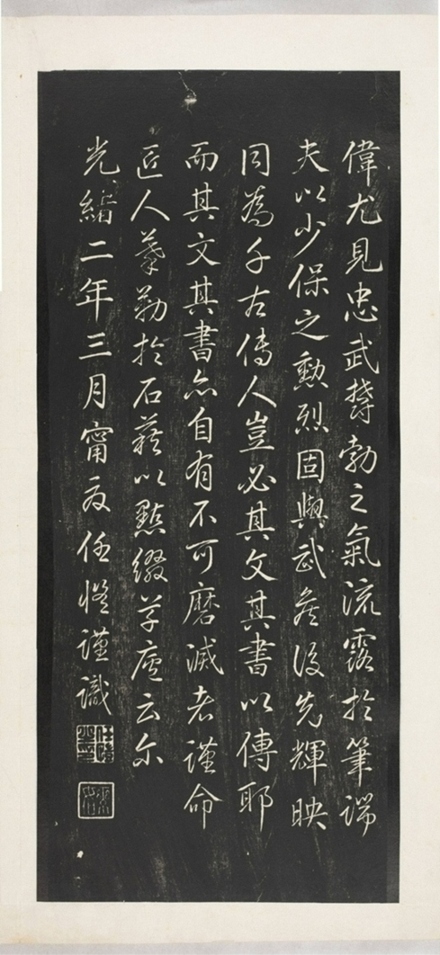 偉尤見忠武鬱勃之氣流露於筆端
夫以少保之勳烈固與武矦後先輝映
同為千古傳人豈必其文其書以傳耶
而其文其書亦自有不可磨滅者謹命
匠人摹勒於石藉以點綴草廬云尒
光緒二年三月甯夏任愷謹識